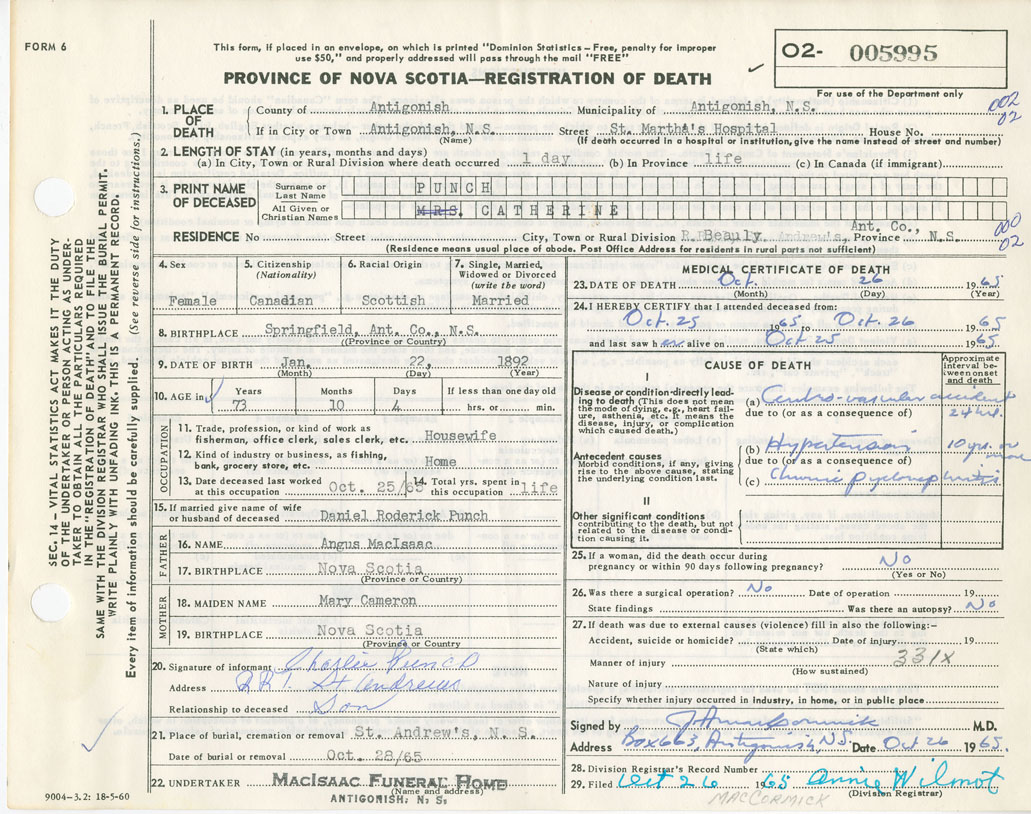 FORM 6
This form, if placed in an envelope, on which is printed "Dominion Statistics – Free, penalty for improper
use $50," and properly addressed will pass through the mail "FREE"
PROVINCE OF NOVA SCOTIA—REGISTRATION OF DEATH
O2- 005995
For use of the Department only
002
02
1. PLACE OF DEATH
County of Antigonish Municipality of Antigonish, N.S.
If in City or Town Antigonish, N.S. Street St. Martha's Hospital House No.
(Name) (If death occurred in a hospital or institution, give the name instead of street and number)
2. LENGTH OF STAY (in years, months and days)
(a) In City, Town or Rural Division where death occurred 1 day (b) In Province life (c) In Canada (if immigrant)
3. PRINT NAME OF DECEASED
Surname or Last Name PUNCH
All Given or Christian Names MRS. CATHERINE
000
02
Ant. Co.,
RESIDENCE No Street City, Town or Rural Division Beauly, Andrew's, Province N.S.
(Residence means usual place of abode. Post Office Address for residents in rural parts not sufficient)
SEC. 14 – VITAL STATISTICS ACT MAKES IT THE DUTY
OF THE UNDERTAKER OR PERSON ACTING AS UNDER-
TAKER TO OBTAIN ALL THE PARTICULARS REQUIRED
IN THE "REGISTRATION OF DEATH" AND TO FILE THE
SAME WITH THE DIVISION REGISTRAR WHO SHALL ISSUE THE BURIAL PERMIT.
WRITE PLAINLY WITH UNFADING INK. THIS IS A PERMANENT RECORD.
Every item of information should be carefully supplied. (See reverse side for instructions.)
4. Sex
Female
5. Citizenship
(Nationality)
Canadian
6. Racial Origin
Scottish
7. Single, Married,
Widowed or Divorced
(write the word)
Married
8. BIRTHPLACE Springfield, Ant. Co., N.S.
(Province or Country)
9. DATE OF BIRTH Jan. 22, 1892
(Month) (Day) (Year)
10. AGE in
Years Months Days If less than one day old
73 10 4 hrs. or min.
OCCUPATION
11. Trade, profession, or kind of work as
fisherman, office clerk, sales clerk, etc. Housewife
12. Kind of industry or business, as fishing,
bank, grocery store, etc. Home
13. Date deceased last worked
at this occupation Oct. 25/65
14. Total yrs. spent in
this occupation life
15. If married give name of wife
or husband of deceased Daniel Roderick Punch
FATHER
16. NAME Angus MacIsaac
17. BIRTHPLACE Nova Scotia
(Province or Country)
MOTHER
18. MAIDEN NAME Mary Cameron
19. BIRTHPLACE Nova Scotia
(Province or Country
20. Signature of informant Charlie Punch
Address RR1. St Andrews
Relationship to deceased Son
21. Place of burial, cremation or removal St. Andrew's, N. S.
Date of burial or removal Oct. 28/65
22. UNDERTAKER MACISAAC FUNERAL HOME
(Name and address)
ANTIGONISH, N. S.
9004-3.2: 18-5-60
MEDICAL CERTIFICATE OF DEATH
23. DATE OF DEATH Oct. 26 1965
(Month) (Day) (Year)
24. I HEREBY CERTIFY that I attended deceased from:
Oct. 25 1965 to Oct. 26 1965
and last saw her alive on Oct 25 1965
CAUSE OF DEATH
Approximate
interval be-
tween onset
and death
I
Disease or condition directly lead-
ing to death (This does not mean
the mode of dying, e.g., heart fail-
ure, asthenia, etc. It means the
disease, injury, or complication
which caused death.)
(a) Cerebro-vascular accident
due to (or as a consequence of) 24 hrs.
Antecedent causes
Morbid conditions, if any, giving
rise to the above cause, stating
the underlying condition last.
(b) Hypertension 10 yrs. or more
due to (or as a consequence of)
(c) Chronic Pyelonephritis
II
Other significant conditions
contributing to the death, but not
related to the disease or condi-
tion causing it.
25. If a woman, did the death occur during
pregnancy or within 90 days following pregnancy? No
(Yes or No)
26. Was there a surgical operation? No Date of operation 19
State findings Was there an autopsy? No
27. If death was due to external causes (violence) fill in also the following:–
Accident, suicide or homicide? Date of injury 19
(State which)
331X
Manner of injury
(How sustained)
Nature of injury
Specify whether injury occurred in industry, in home, or in public place
Signed by M.D.
Address Box 663, Antigonish, N.S. Date Oct 26 1965.
28. Division Registrar's Record Number
29. Filed Oct 26 1965 Annie Wilmot
(Division Registrar)
MACCORMICK